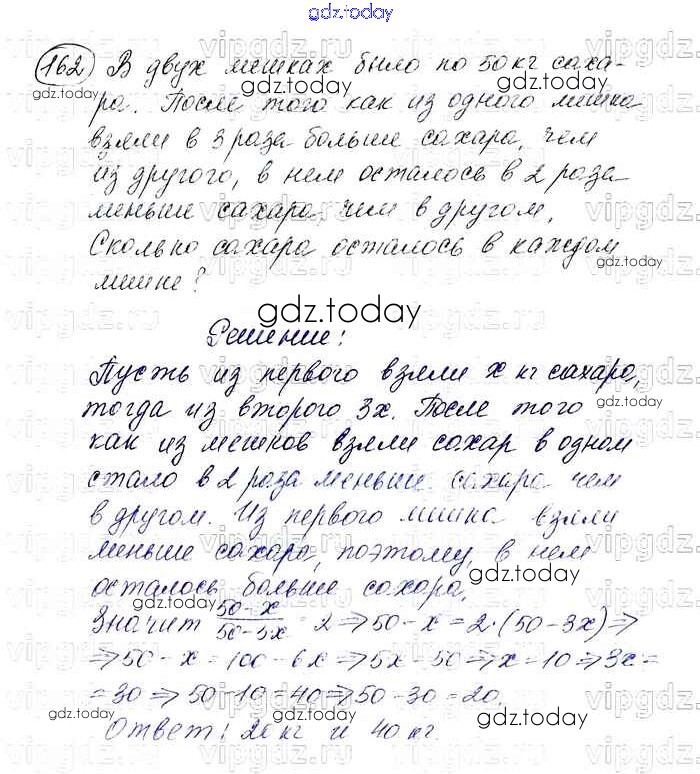 gdz.today
162 В двух мешках было по 50 кг саха-
ра. После того как из одного мешка
взяли в 3 раза больше сахара, чем
из другого, в нем осталось в 2 раза
меньше сахара, чем в другом.
Сколько сахара осталось в каждом
мешке?
gdz.today
Решение:
Пусть из первого взяли x кг сахара,
тогда из второго 3x. После того
как из мешков взяли сахар в одном
стало в 2 раза меньше сахара чем
в другом. Из первого мешка взяли
меньше сахара, поэтому, в нем
осталось больше сахара.
Значит (50-x)/(50-3x) = 2 ⇒ 50-x = 2·(50-3x) ⇒
⇒ 50-x = 100-6x ⇒ 5x=50 ⇒ x=10 ⇒ 3x=
=30 ⇒ 50-10=40 ⇒ 50-30=20.
Ответ: 20 кг и 40 кг.
gdz.today
vipgdz